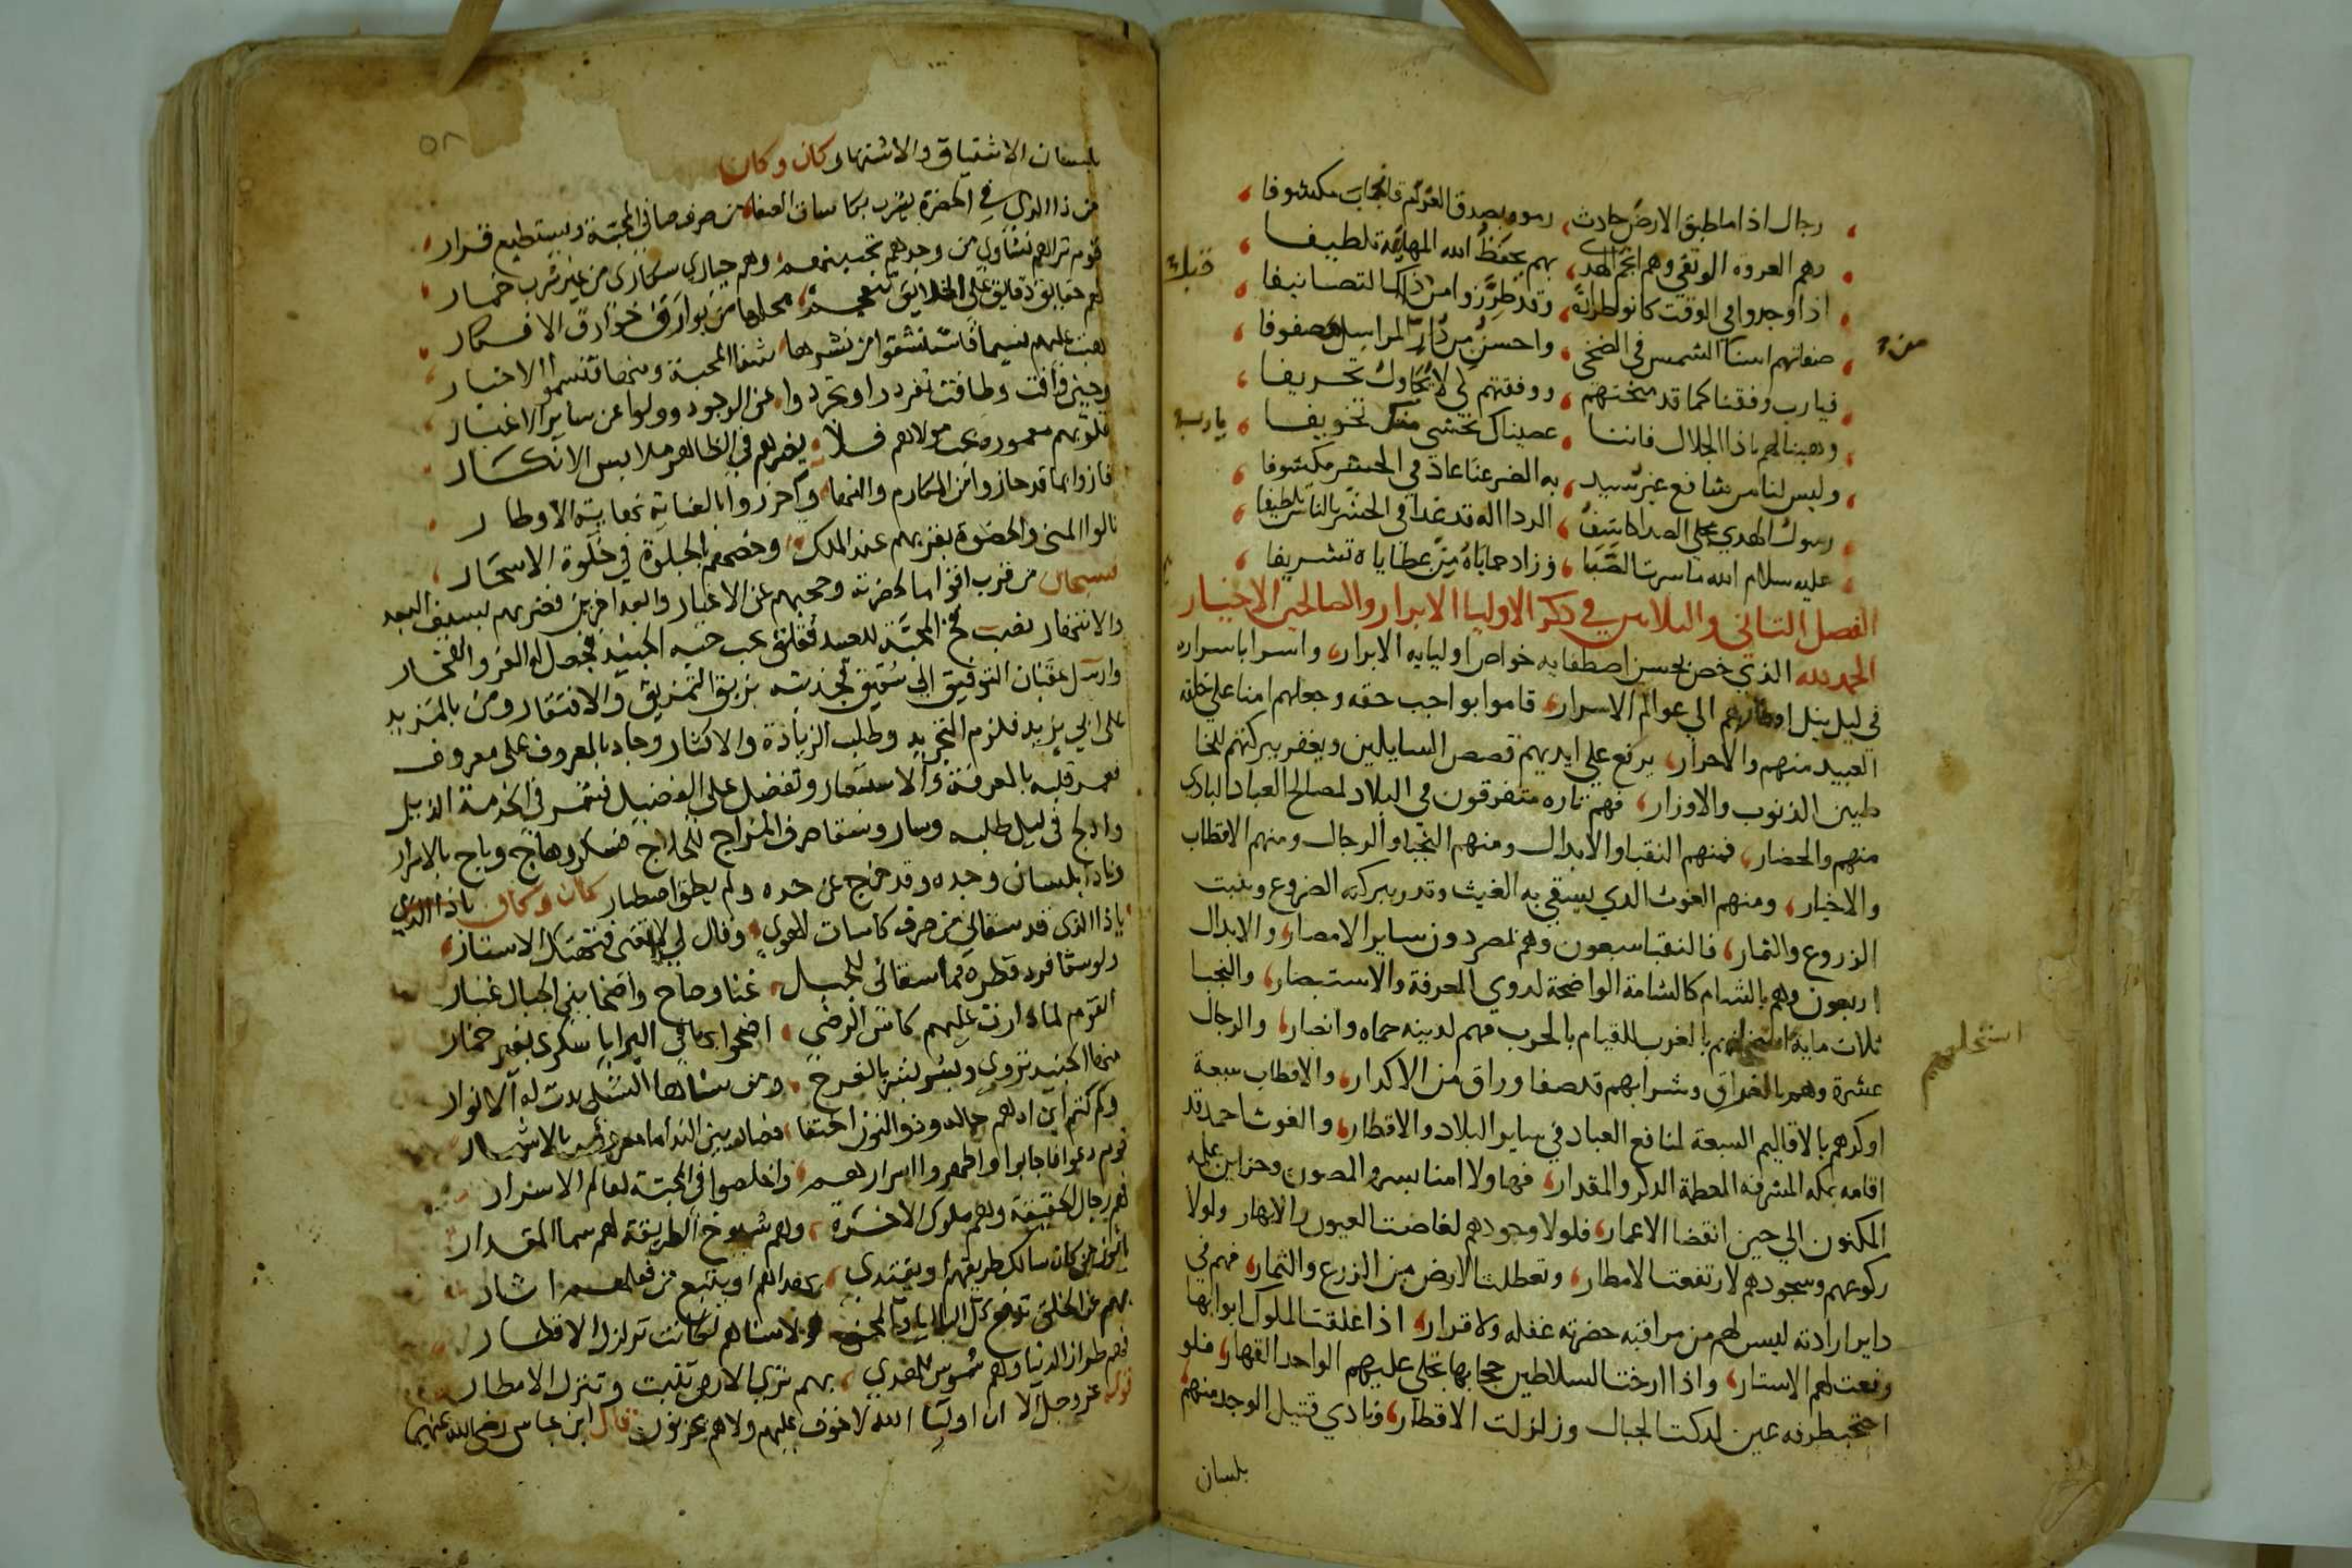 رجال اذا ما طبق الارض حادث، رموه بصدق العزم فانجاب مكشوفا
وهم العروه الوثقي وهم انجم الهدي، بهم يحفظ الله المهابة تلطيفا
اذا وجدوا في الوقت كانوا طرازه، وقد طرزوا من ذاك التصانيفا
صفاتهم اسنا الشمس في الضحي، واحسن من در المراسل مصفوفا
فيارب وفقنا كما قد منحتهم، ووفقتهم لي لا تجاوك تحريفا
وهبنا لهم ياذا الجلال فاننا، عصيناك نخشي منك تخويفا
وليس لنا من شافع غير سيد، به الضر عنا عاد في الحشر مكشوفا
رسول الهدي على الصدا كاشف الردا اله قد غدا في الحشر بالناس لطيفا
عليه سلام الله ما سرت الصبا، وزاد حماياه من عطاياه تشريفا
الفصل الثاني والثلاثين في ذكر الاوليا الابرار والصالحين الاخيار
الحمد لله الذي خص بحسن اصطفايه خواص اوليايه الابرار، واسرا باسراره
في ليل نيل اوطارهم الي عوالم الاسرار، قاموا بواجب حقه وجعلهم امنا على خلقه
العبيد منهم والاحرار، يرفع علي ايديهم قصص السايلين ويغفر ببركتهم للخا
طيين الذنوب والاوزار، فهم تاره متفرقون في البلاد لمصالح العباد البادي
منهم والحضار، فمنهم النقبا والابدال ومنهم النجبا والرجال ومنهم الاقطاب
والاخيار، ومنهم الغوث الذي يسقي به الغيث وتدر ببركته الضروع وينبت
الزروع والثمار، فالنقبا سبعون وهم بمصر دون ساير الامصار، والابدال
اربعون وهم بالشام كالشامة الواضحة لدوي المعرفة والاستبصار، والنجبا
ثلاث ماية بالغرب للقيام بالحرب فهم لدينه حماه وانصار، والرجال
عشرة وهم بالعراق وشرابهم قد صفا وراق من الاكدار، والاقطاب سبعة
اوكرهم بالاقاليم السبعة لمنافع العباد في ساير البلاد والاقطار، والغوث احمد قد
اقامه بمكه المشرفه المعظمة الذكر والمقدار، فهاولا امنا بسره المصون وخزاين علمه
المكنون الي حين انقضا الاعمار، فلولا وجودهم لغاضت العيون والانهار ولولا
ركوعهم وسجودهم لارتفعت الامطار، وتعطلت الارض من الزرع والثمار، فهم في
داير ارادته ليس لهم من مراقبه حضرته غفله ولا قرار، اذا غلقت الملوك ابوابها
رفعت لهم الاستار، واذا ارخت السلاطين حجابها تجلي عليهم الواحد القهار، فلو
احتجب طرفة عين لدكت الجبال وزلزلت الاقطار، ونادي قتيل الوجد منهم
بلسان
بلسان الاشتياق والاشتهار كان وكان
من ذا الذي في الحضرة يشرب بكاسات الصفا، من صرف صافي المحبة ويستطيع قرار
قوم تراهم نشاوي من وجدهم تحسبنهم، وهم حياري سكاري من غير شرب خمار
لهم حقايق دقايق على الخلايق، محلها من بوارق خوارق الافكار
هبت عليهم نسيما فاستنشقوا من نشرها، شذا المحبة ومنها قتسموا الاخبار
وحين فاقت وطافت تفردوا وتجردوا، عن الوجود وولوا عن ساير الاغيار
قلوبهم معموره بحب مولاهم فلا، يغرهم في الظاهر ملابس الانكسار
فازوا بما قد حازوا من المكارم والنعما، واحرزوا بالعناية نهاية الاوطار
نالوا المنى والحضوة بقربهم عند الملك، وخصهم بالجلوة في خلوة الاسحار
فسبحان من قرب اقواما لحضرته وحجبهم عن الاغيار وابعد اخرين فضربهم بسيف البعد
والانتهار نصب فخ المحبة للعبيد فعلق بحب حبه الجنيد فحصل له العز والفخار
وارسل عقبان التوفيق الي شقيق فجذبته بزيق التمزيق والافتقار ومن بالمزيد
على ابي يزيد فلزم التجريد وطلب الزيادة والاكثار وجاد بالمعروف على معروف
فعمر قلبه بالمعرفة والاستعمار وتفضل على الفضيل فشمر في الخدمة الذيل
وادلج في ليل طلبه وسار وسقا صرف المزاج للحلاج فسكر وهاج وباح بالاسرار
ونادا بلسان وجده وقد خرج عن حده ولم يطق اصطبار كان وكان ياذا الذي
ياذا الذي قد سقاني من صرف كاسات الهوي، وقال لي لا تغنى فتهتك الاستار
ولو سقا فرد قطره مما سقاني للجبل، غنا وصاح واضحا بين الجبال غبار
القوم لما دارت عليهم كاس الرضي، اضحوا بباقي البرايا سكرى بغير خمار
منها الجنيد تزوي وبشر بشر بالفرح، ومن سناها الشبلي بدت له الانوار
وكم كتم ابن ادهم حاله وذو النون اختفا، فصار بين الندامامعروف بالاشهار
قوم دعوا فاجابوا واطهروا اسرارهم، واخلصوا في المحبة لعالم الاسرار
هم رجال الحقيقة وهم ملوك الاخرة، وهم شيوخ الطريقة لهم سما المقدار
بهم عن الخلق ترفع كل البلايا والمحن، ولاسناهم لكانت تزلزل الاقطار
فهم طراز الدنيا وهم شموس للهدي، بهم تري الارض تنبت وتنزل الامطار
قوله عز وجل الا ان اوليا الله لا خوف عليهم ولا هم يحزنون قال ابن عباس رضي الله عنهما